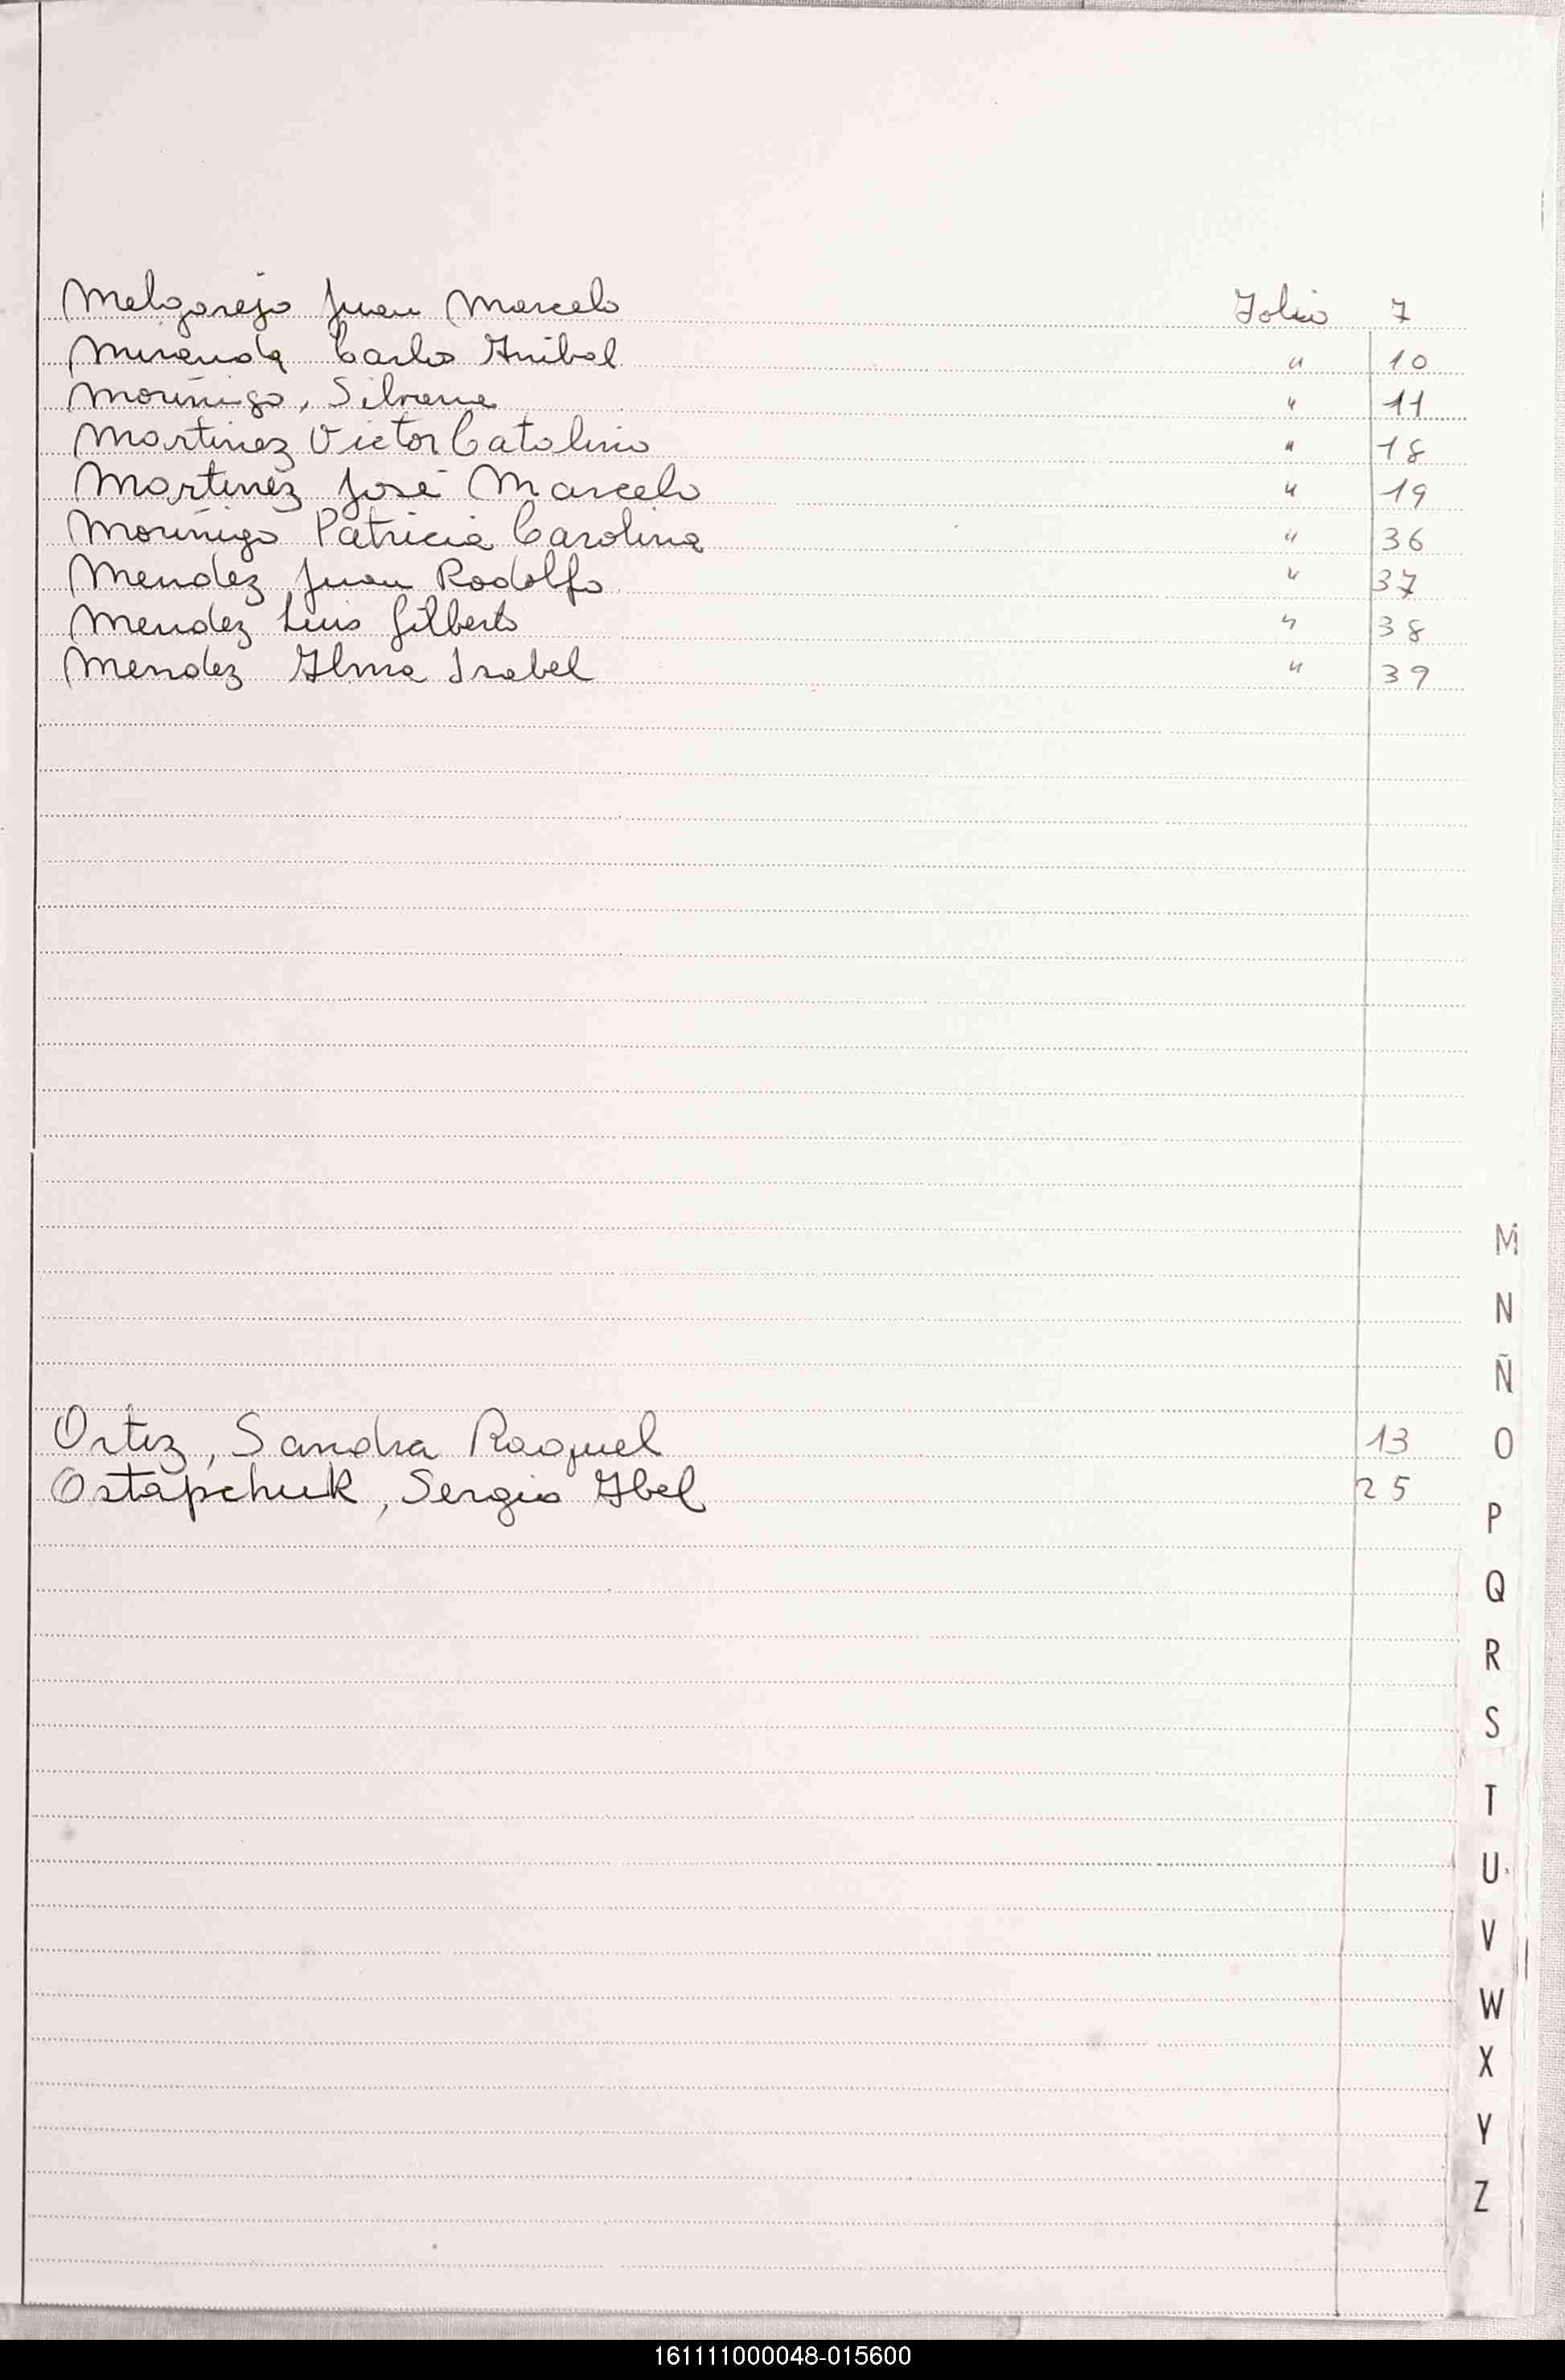 Melgarejo Juan Marcelo Folio 7
Miranda Carlos Anibal " 10
Moriñigo, Silvana " 11
Martinez Victor Catalino " 18
Martinez José Marcelo " 19
Moriñigo Patricia Carolina " 36
Mendez Juan Rodolfo " 37
Mendez Luis Gilberto " 38
Mendez Alma Isabel " 39
M
N
Ñ
Ortiz, Sandra Raquel 13
O
Ostapchuk, Sergio Abel 25
P
Q
R
S
T
U
V
W
X
Y
Z
161111000048-015600